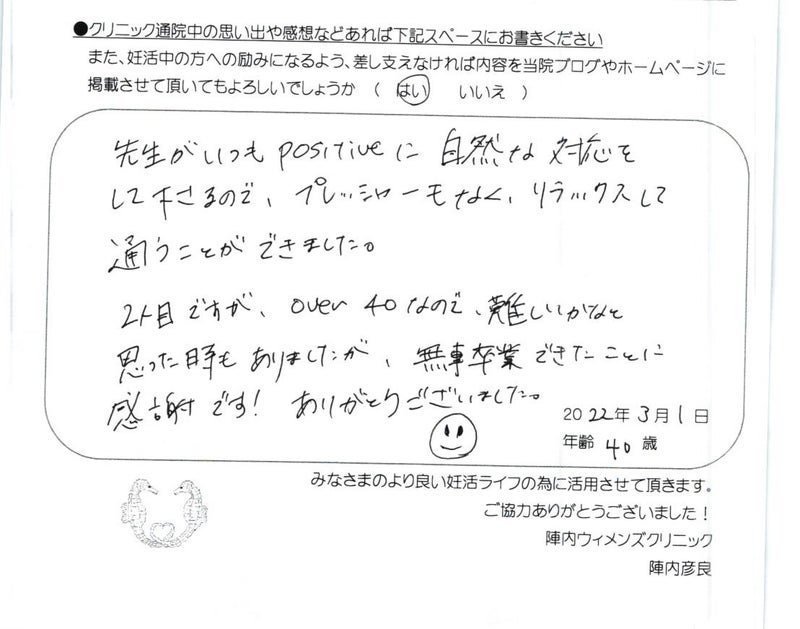 ●クリニック通院中の思い出や感想などあれば下記スペースにお書きください
また、妊活中の方への励みになるよう、差し支えなければ内容を当院ブログやホームページに
掲載させて頂いてもよろしいでしょうか （ はい いいえ ）
先生がいつもpositiveに自然な対応を
して下さるので、プレッシャーもなく、リラックスして
通うことができました。
2人目ですが、over 40なので、難しいかなと
思った時もありましたが、無事卒業できたことに
感謝です! ありがとうございました。
2022年3月1日
年齢 40 歳
みなさまのより良い妊活ライフの為に活用させて頂きます。
ご協力ありがとうございました！
陣内ウィメンズクリニック
陣内彦良